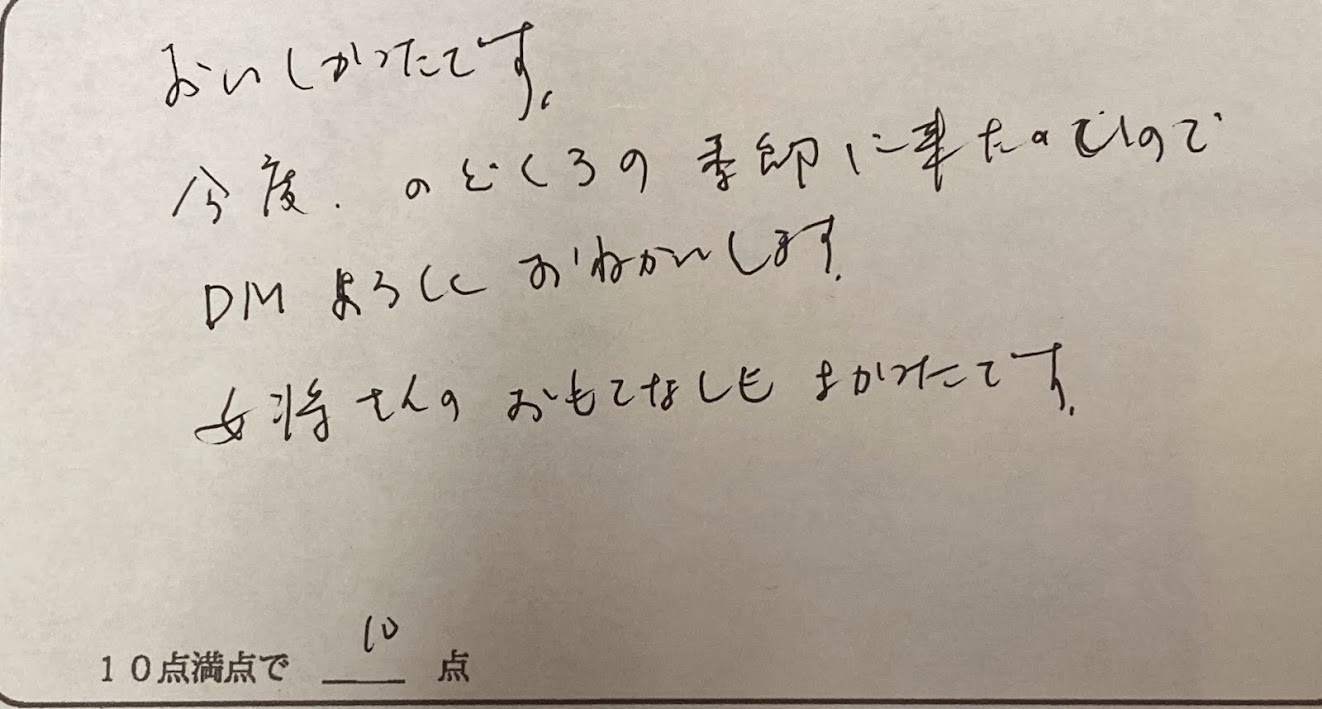 おいしかったです。
今度、のどくろの季節に来たいのでので
DMよろしくおねがいします。
女将さんのおもてなしもよかったです。
10点満点で 10 点